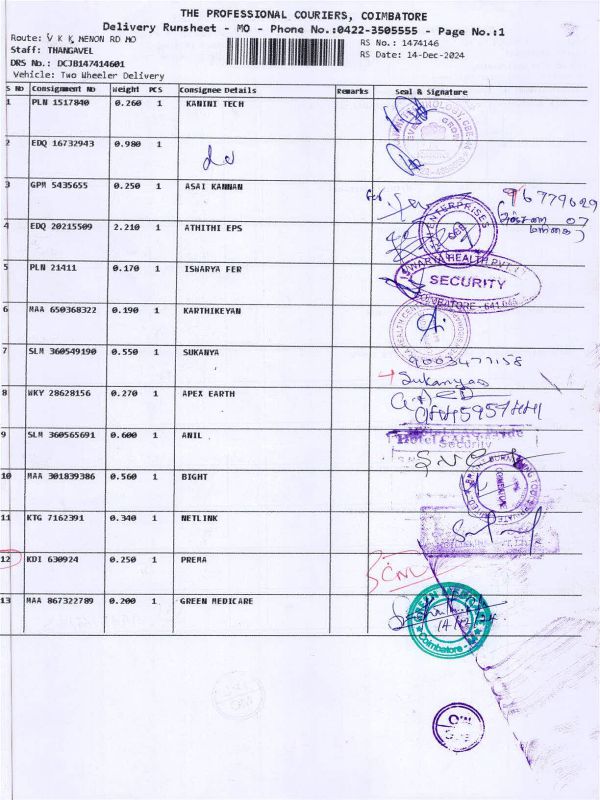 THE PROFESSIONAL COURIERS, COIMBATORE
Delivery Runsheet - MO - Phone No.:0422-3505555 - Page No.:1
Route: V K K MENON RD MO
RS No.: 1474146
Staff: THANGAVEL
RS Date: 14-Dec-2024
DRS No.: DCJB147414601
Vehicle: Two Wheeler Delivery
S No Consignment No Weight PCS Consignee Details Remarks Seal & Signature
1 PLN 1517840 0.260 1 KANINI TECH
2 EDQ 16732943 0.980 1 do
3 GPM 5435655 0.250 1 ASAI KANNAN
4 EDQ 20215509 2.210 1 ATHITHI EPS
ENTERPRISES
5 PLN 21411 0.170 1 ISWARYA FER
ISWARYA HEALTH PVT.LT
SECURITY
COIMBATORE - 641 044
6 MAA 650368322 0.190 1 KARTHIKEYAN
7 SLM 360549190 0.550 1 SUKANYA
9003477158
Sukanya
8 WKY 28628156 0.270 1 APEX EARTH
9 SLM 360565691 0.600 1 ANIL
Security
10 MAA 301839386 0.560 1 BIGHT
11 KTG 7162391 0.340 1 NETLINK
12 KDI 630924 0.250 1 PREMA
13 MAA 867322789 0.200 1 GREEN MEDICARE
GREEN MEDICARE
Coimbatore